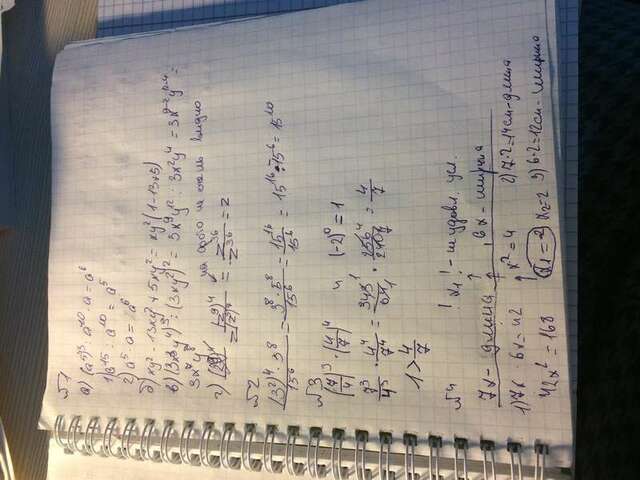 №1
а) (a⁵)³ : a¹⁰ · a = a⁶
1) a¹⁵ : a¹⁰ = a⁵
2) a⁵ · a = a⁶
б) xy² - 13xy² + 5xy² = xy² (1-13+5)
в) (3x³y⁴)³ : (3xy²)² = 3x⁹y¹² : 3x²y⁴ = 3x⁹⁻²y¹²⁻⁴ =
3x⁷y⁸
на фото не очень видно
г) = z³⁶ = z
№2
(3²)⁴ · 5⁸ / 15⁶ = 3⁸ · 5⁸ / 15⁶ = 15¹⁶ / 15⁶ = 15¹⁶ : 15⁶ = 15¹⁰
№3
(7/4)³ · (4/7)⁴ и (-2)⁰ = 1
7³/4³ · 4⁴/7⁴ = 343/64 · 256/2401 = 4/7
1 > 4/7
№4 ! x₁ ! - не удовл. усл.
7x - длина 6x - ширина
1) 7x · 6x = 42 x² = 4 2) 7·2=14см - длина
42x² = 168 x₁ = -2 x₂=2 3) 6·2=12см - ширина